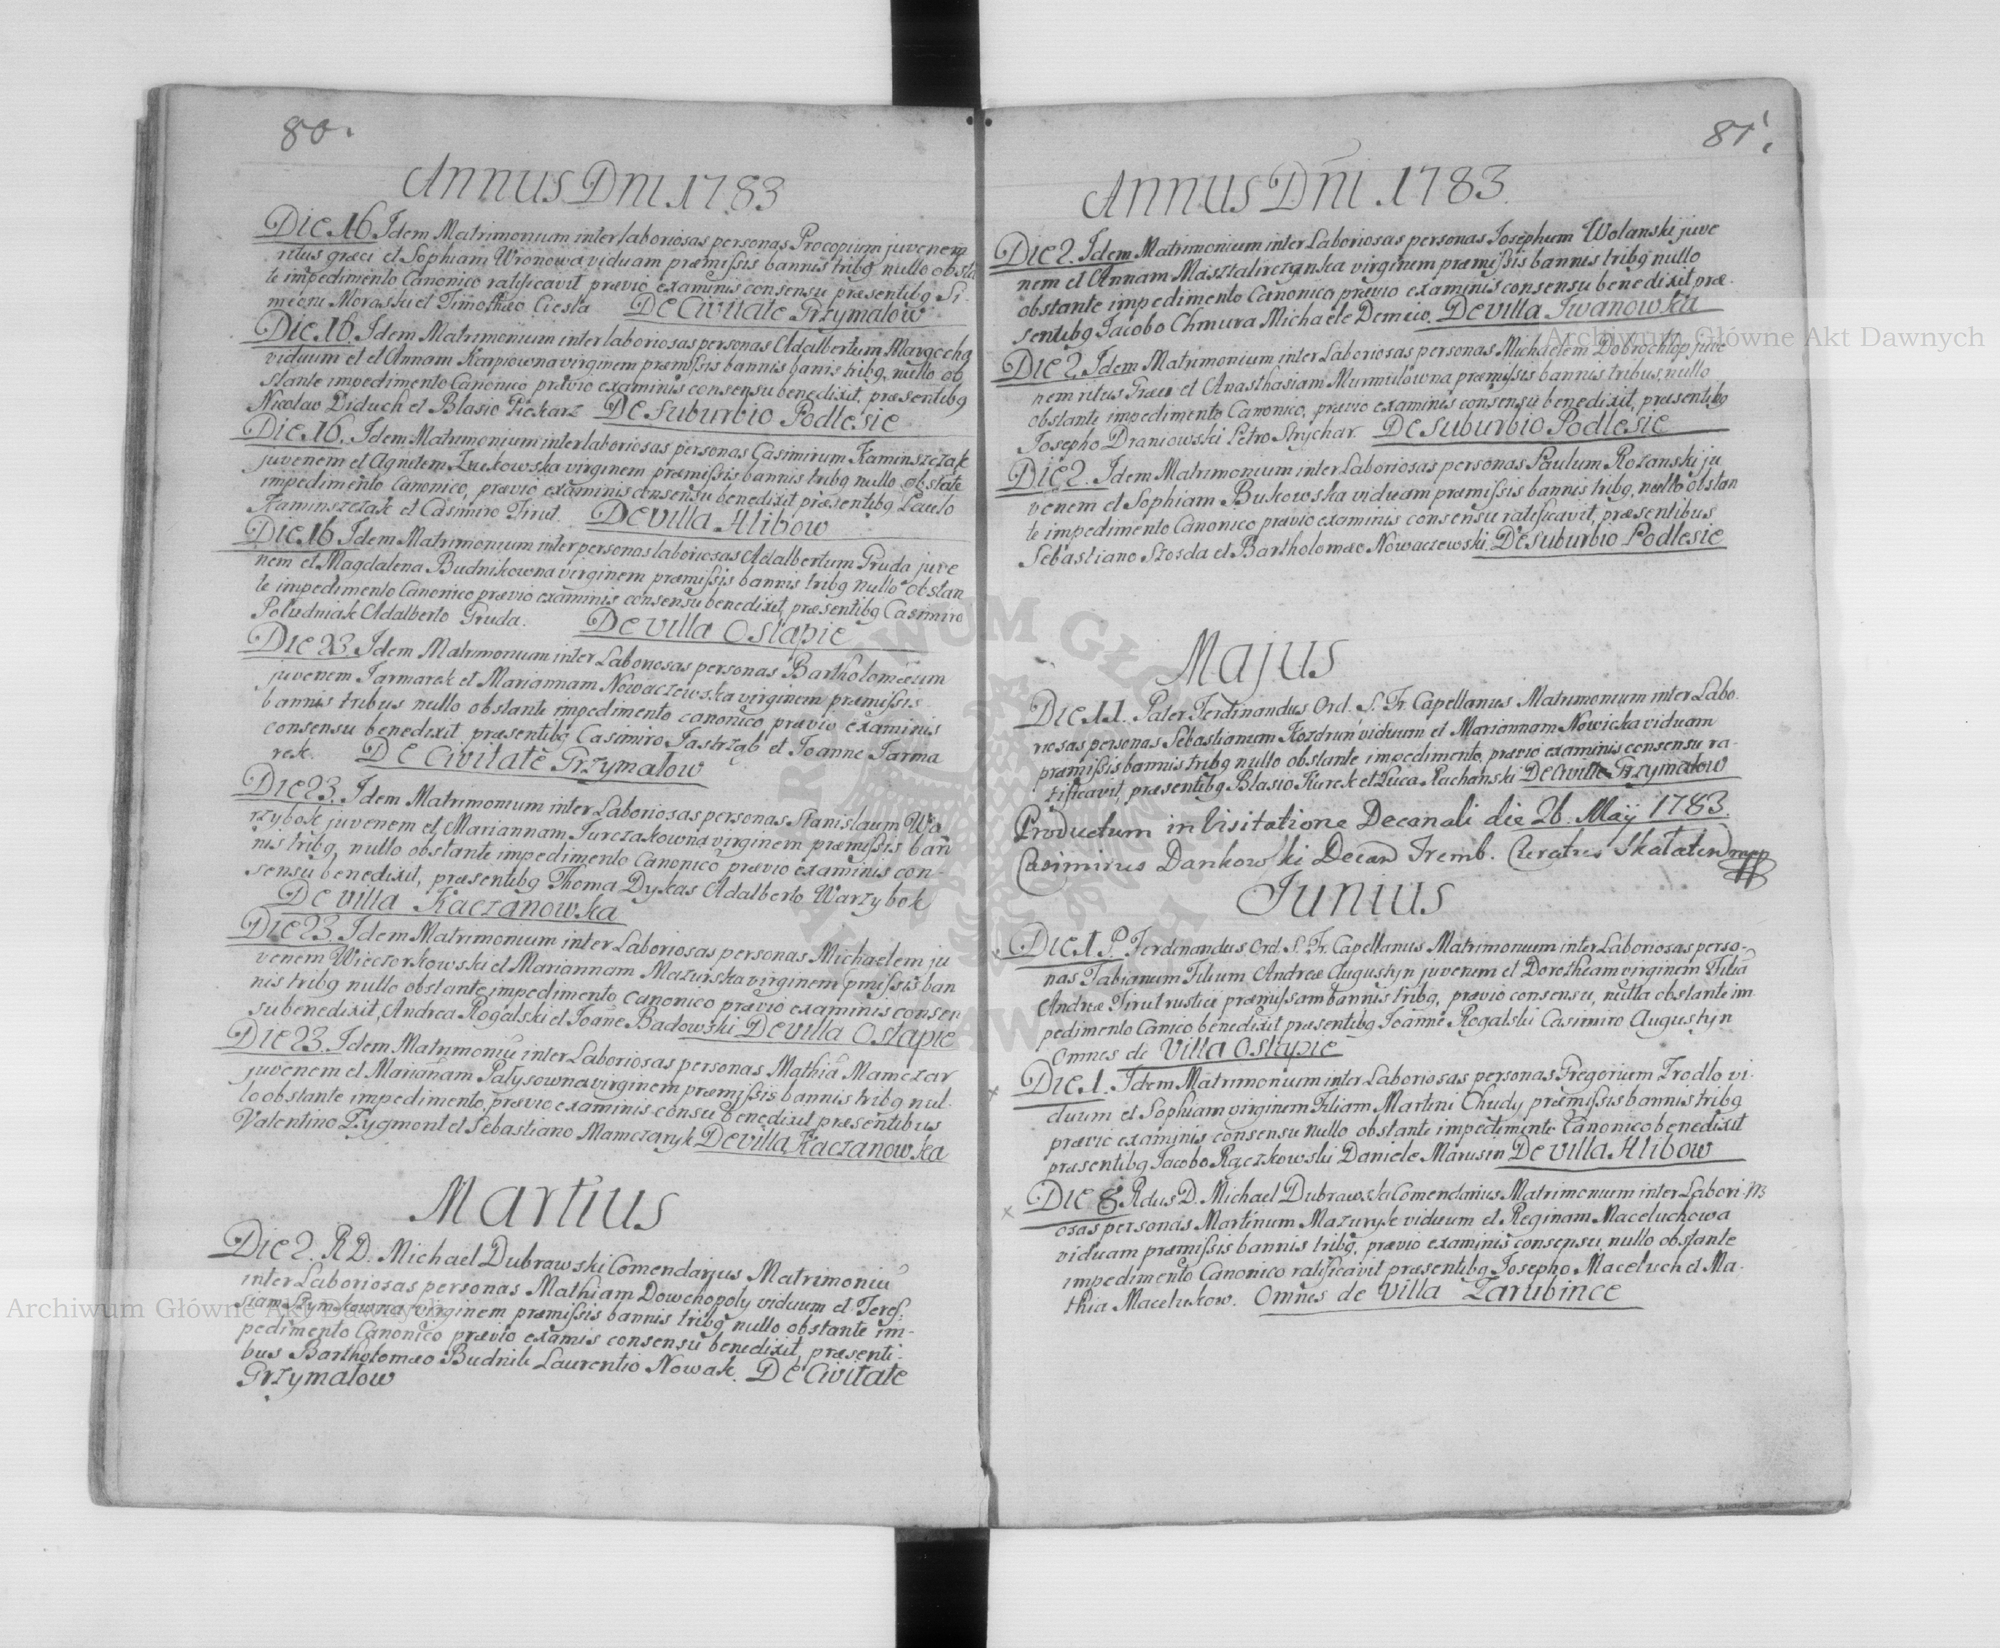 80.
Annus Dni 1783
Die 16 Idem Matrimonium inter laboriosas personas Procopium juvenem
ritus græci et Sophiam Wronowa viduam præmissis bannis tribq nullo obsta
te impedimento Canonico ratificavit prævio examinis consensu præsentibq Si-
meonu Moraski et Timotheo Ciesla De Civitate Grzymałow
Die 16 Idem Matrimonium inter laboriosas personas Adalbertum Margocha
viduum et et Annam Karpiowna virginem præmissis bannis banis tribq, nullo ob
stante impedimento Canonico prævio examinis consensu benedixit, præsentibq
Nicolao Diduch et Blasio Piekarz De suburbio Podlesie
Die 16. Idem Matrimonium inter laboriosas personas Casimirum Kaminszczak
juvenem et Agnetem Zukowska virginem præmissis bannis tribq nullo obstāte
impedimento Canonico, prævio examinis consensu benedixit præsentibq Paulo
Kaminszczak et Casimiro Firut. De villa Hlibow
Die 16 Idem Matrimonium inter personas laboriosas Adalbertum Gruda juve
nem et Magdalena Budnikowna virginem præmissis bannis tribq nullo obstan
te impedimento Canonico prævio examinis consensu benedixit, præsentibq Casimiro
Południak Adalberto Gruda. De villa Ostapie
Die 23. Idem Matrimonium inter Laboriosas personas Bartholomæum
juvenem Jarmarek et Mariannam Nowaczewska virginem præmissis
bannis tribus nullo obstante impedimento canonico, prævio examinis
consensu benedixit præsentibq Casimiro Jastrząb et Joanne Jarma
rek. De Civitate Grzymałow
Die 23. Idem Matrimonium inter Laboriosas personas Stanislaum Wa
rzybok juvenem et Mariannam Jurczakowna virginem præmissis ban
nis tribq, nullo obstante impedimento Canonico prævio examinis con-
sensu benedixit, præsentibq Thoma Dykas Adalberto Warzybok
De villa Kaczanowska
Die 23. Idem Matrimonium inter Laboriosas personas Michaelem ju
venem Wieczorkowski et Mariannam Mazurska virginem pmissis ban
nis tribq nullo obstante impedimento Canonico prævio examinis consen
su benedixit, Andrea Rogalski et Joañe Badowski De villa Ostapie
Die 23. Idem Matrimoniu inter Laboriosas personas Mathia Mamczar
juvenem et Marianam Pałysowna virginem præmissis bannis tribq nul-
lo obstante impedimento prævio examinis consu benedixit præsentibus
Valentino Zygmont et Sebastiano Mamczaryk De villa Kaczanowka
Martius
Die 2. R D. Michael Dubrawski Comendarius Matrimoniu
inter Laboriosas personas Mathiam Dowchopoly viduum et Teres-
siam Szymkowna virginem præmissis bannis tribq nullo obstante im-
pedimento Canonico prævio examis consensu benedixit, præsenti-
bus Bartholomæo Budnik Laurentio Nowak. De Civitate
Grzymałow
81.
Annus Dni 1783.
Die 2. Idem Matrimonium inter Laboriosas personas Josephum Wolanski juve
nem et Annam Masztalirczanka virginem præmissis bannis tribq nullo
obstante impedimento Canonico prævio examinis consensu benedixit præ-
sentibq Jacobo Chmura Michaele Demciw. De villa Iwanowka
Die 2. Idem Matrimonium inter Laboriosas personas Michaelem Dobrochłop juve
nem ritus Græci et Anasthasiam Murmulowna præmissis bannis tribus, nullo
obstante impedimento Canonico, prævio examinis consensu benedixit, præsentibq
Josepho Draniowski Petro Strychar. De suburbio Podlesie
Die 2. Idem Matrimonium inter Laboriosas personas Paulum Rozanski ju
venem et Sophiam Bukowska viduam præmissis bannis tribq, nullo obstan
te impedimento Canonico prævio examinis consensu ratificavit, præsentibus
Sebastiano Szozda et Bartholomæo Nowaczewski. De suburbio Podlesie
Majus
Die 11. Pater Ferdinandus Ord. S. Fr. Capellanus Matrimonium inter Labo-
riosas personas Sebastianum Kozdrun viduum et Mariannam Nowicka viduam
præmissis bannis tribq nullo obstante impedimento, prævio examinis consensu ra-
tificavit, præsentibq Blasio Kurek et Luca Pachanski De Civitte Grzymałow
Productum in Visitatione Decanali die 26. Maij 1783.
Casimirus Dankowski Decan Tremb. Curatus Skalaten mpp
Junius
Die 1. P. Ferdinandus Ord. S. Fr. Capellanus Matrimonium inter Laboriosas perso-
nas Fabianum Filium Andreæ Augustyn juvenem et Dorotheam virginem Filiā
Andreæ Firut rustici præmissam bannis tribq, prævio consensu, nulla obstante im
pedimento Canico benedixit præsentibq Joanne Rogalski Casimiro Augustyn
Omnes de Villa Ostapie
Die 1. Idem Matrimonium inter Laboriosas personas Gregorium Zrodło vi-
duum et Sophiam virginem Filiam Martini Chudy præmissis bannis tribq
prævio examinis consensu nullo obstante impedimento Canonico benedixit
præsentibq Jacobo Rączkowski Daniele Marusin De villa Hlibow
Die 8. Rdus D. Michael Dubrawski Comendarius Matrimonium inter Labori-
osas personas Martinum Mazuryk viduum et Reginam Maceluchowa
viduam præmissis bannis tribq, prævio examinis consensu, nullo obstante
impedimento Canonico ratificavit præsentibq Josepho Maceluch et Ma-
thia Macelukow. Omnes de Villa Zarubince
Archiwum Główne Akt Dawnych
Archiwum Główne Akt Dawnych
ARCHIWUM GŁÓWNE AKT DAWNYCH